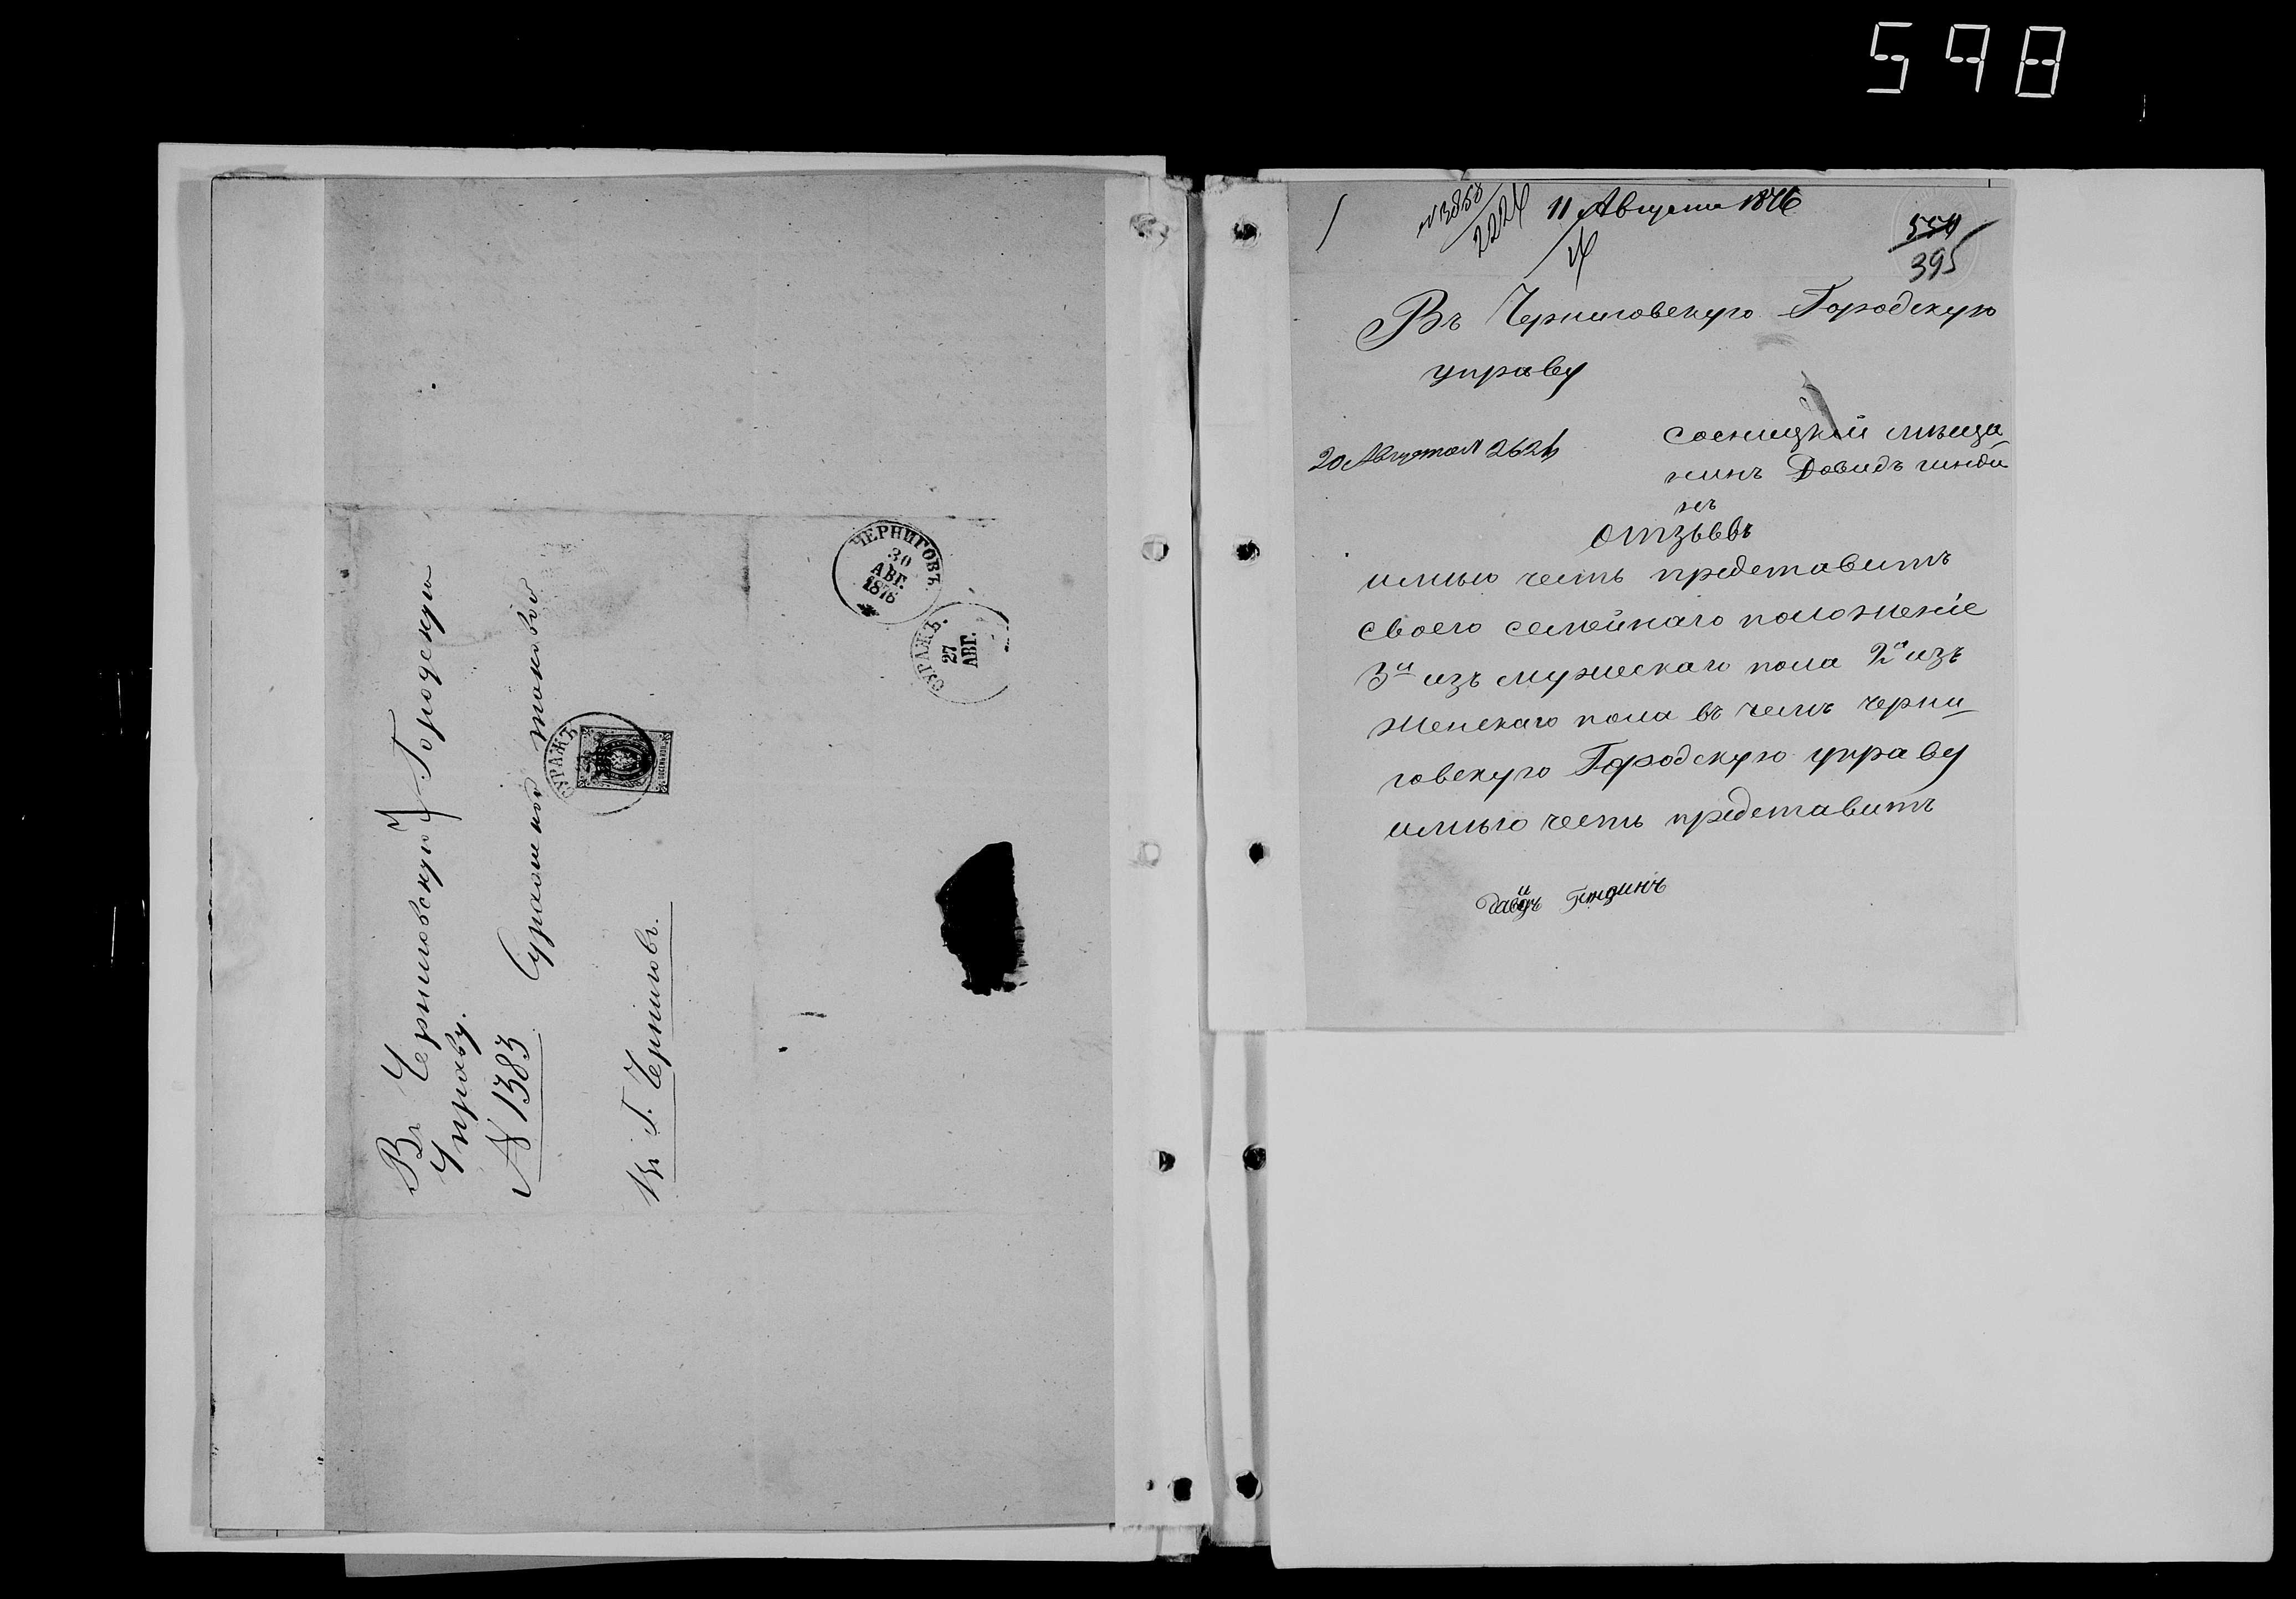 598
Въ Черниговскую Городскую
Управу.
№ 1383
Суражской
Въ Г. Черниговъ.
СУРАЖЪ
ЧЕРНИГОВЪ
30
АВГ.
1876
СУРАЖЪ.
27
АВГ.
№ 3858
2224
11 Августа 1876
554
395
Въ Черниговскую Городскую
управу
20 Августа № 2624
сосницкий меща
нинъ Довидъ гинди
нъ
отзывъ
имѣю честь представить
своего семейнаго положеніе
3и изъ мужескаго пола 2и изъ
женскаго пола въ чемъ черни-
говскую Городскую управу
имѣю честь представить
Давидъ Гиндинъ